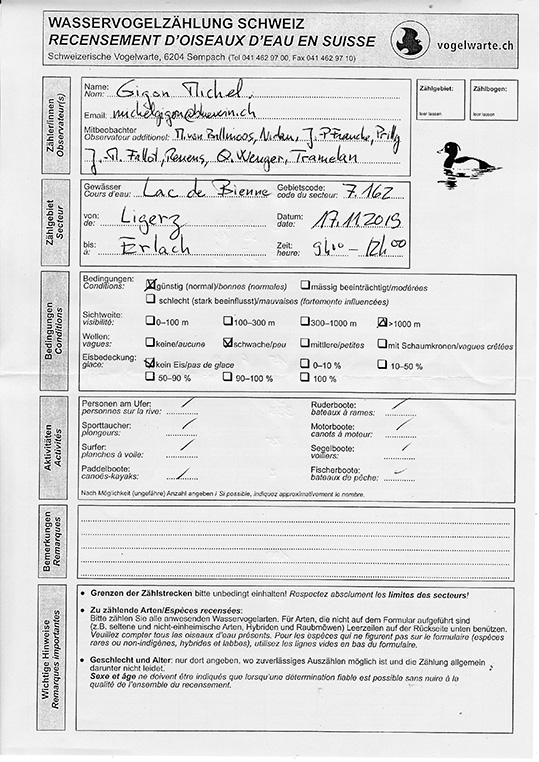 WASSERVOGELZÄHLUNG SCHWEIZ
RECENSEMENT D'OISEAUX D'EAU EN SUISSE
Schweizerische Vogelwarte, 6204 Sempach (Tel 041 462 97 00, Fax 041 462 97 10)
vogelwarte.ch
ZählerInnen
Observateur(s)
Name:
Nom: Gigon Michel
Email:
Mitbeobachter
Observateur additionel:
J. M. Fallot, Renens, O. Wenger, Tramelan
Zählgebiet:
leer lassen
Zählbogen:
leer lassen
Zählgebiet
Secteur
Gewässer
Cours d'eau: Lac de Bienne
Gebietscode:
code du secteur: 7.162
von:
de: Ligerz
Datum:
date: 17.11.2019
bis:
à: Erlach
Zeit:
heure: 9h00 – 12h00
Bedingungen
Conditions
Bedingungen:
Conditions:
günstig (normal)/bonnes (normales)
mässig beeinträchtigt/modérées
schlecht (stark beeinflusst)/mauvaises (fortemente influencées)
Sichtweite:
visibilité:
0–100 m
100–300 m
300-1000 m
>1000 m
Wellen:
vagues:
keine/aucune
schwache/peu
mittlere/petites
mit Schaumkronen/vagues crêtées
Eisbedeckung:
glace:
kein Eis/pas de glace
0–10 %
10–50 %
50–90 %
90–100 %
100 %
Aktivitäten
Activités
Personen am Ufer:
personnes sur la rive:
Ruderboote:
bateaux à rames:
Sporttaucher:
plongeurs:
Motorboote:
canots à moteur:
Surfer:
planches à voile:
Segelboote:
voiliers:
Paddelboote:
canoës-kayaks:
Fischerboote:
bateaux de pêche:
Nach Möglichkeit (ungefähre) Anzahl angeben / Si possible, indiquez approximativement le nombre.
Bemerkungen
Remarques
Wichtige Hinweise
Remarques importantes
• Grenzen der Zählstrecken bitte unbedingt einhalten! Respectez absolument les limites des secteurs!
• Zu zählende Arten/Espèces recensées:
Bitte zählen Sie alle anwesenden Wasservogelarten. Für Arten, die nicht auf dem Formular aufgeführt sind
(z.B. seltene und nicht-einheimische Arten, Hybriden und Raubmöwen) Leerzeilen auf der Rückseite unten benützen.
Veuillez compter tous les oiseaux d'eau présents. Pour les espèces qui ne figurent pas sur le formulaire (espèces
rares ou non-indigènes, hybrides et labbes), utilisez les lignes vides en bas du formulaire.
• Geschlecht und Alter: nur dort angeben, wo zuverlässiges Auszählen möglich ist und die Zählung allgemein
darunter nicht leidet.
Sexe et âge ne doivent être indiqués que lorsqu'une détermination fiable est possible sans nuire à la
qualité de l'ensemble du recensement.